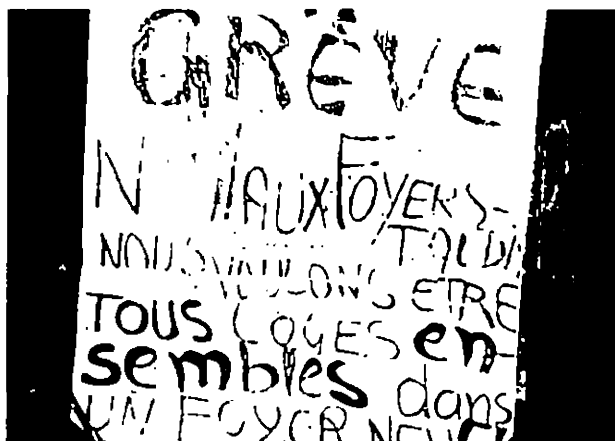 GRÈVE
AUX FOYERS-
TAUDI
NOUS VOULONS ETRE
TOUS LOGES en-
sembles dans
UN FOYER NEUF